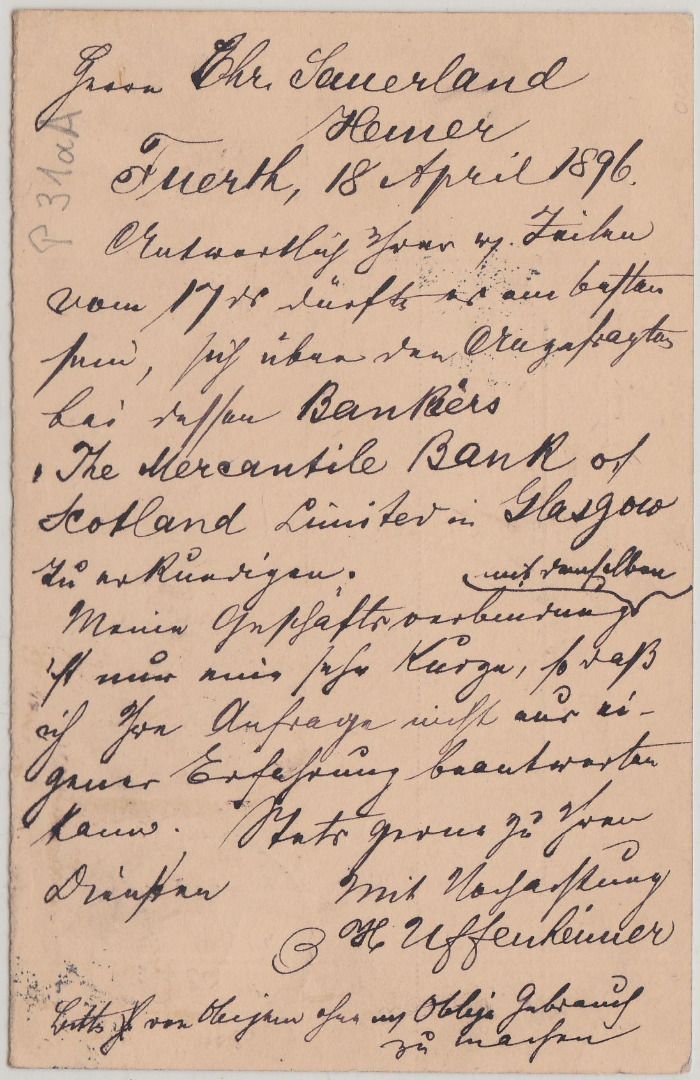 Herrn Chr. Sauerland
Hemer
Fuerth, 18 April 1896.
Antwortlich Ihrer w. Zeilen
vom 17 ds dürfte es am besten
sein, sich über den Angefragten
bei dessen Bankiers
The Mercantile Bank of
Scotland Limited in Glasgow
zu erkundigen.
mit demselben
Meine Geschäftsverbindung
ist nur eine sehr kurze, so daß
ich Ihre Anfrage nicht aus ei-
gener Erfahrung beantworten
kann. Stets gerne zu Ihren
Diensten Mit Hochachtung
H Uffenheimer
Bitte von Obigem ohne Obligo Gebrauch
zu machen
P 31aA